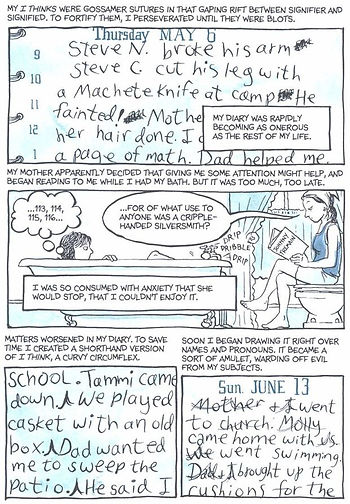 MY I THINKS WERE GOSSAMER SUTURES IN THAT GAPING RIFT BETWEEN SIGNIFIER AND
SIGNIFIED. TO FORTIFY THEM, I PERSEVERATED UNTIL THEY WERE BLOTS.
Thursday MAY 6
9
10
11
12
1
Steve N. broke his arm
Steve C. cut his leg with
a Machete Knife at camp. He
fainted! Mothe
her hair done. I
a page of math. Dad helped me.
MY DIARY WAS RAPIDLY
BECOMING AS ONEROUS
AS THE REST OF MY LIFE.
MY MOTHER APPARENTLY DECIDED THAT GIVING ME SOME ATTENTION MIGHT HELP, AND
BEGAN READING TO ME WHILE I HAD MY BATH. BUT IT WAS TOO MUCH, TOO LATE.
...113, 114,
115, 116...
...FOR OF WHAT USE TO
ANYONE WAS A CRIPPLE-
HANDED SILVERSMITH?
DRIP
DRIBBLE
DRIP
JOHNNY
TREMAIN
I WAS SO CONSUMED WITH ANXIETY THAT SHE
WOULD STOP, THAT I COULDN'T ENJOY IT.
MATTERS WORSENED IN MY DIARY. TO SAVE
TIME I CREATED A SHORTHAND VERSION
OF I THINK, A CURVY CIRCUMFLEX.
SCHOOL. Tammi came
down. We played
casket with an old
box. Dad wanted
me to sweep the
patio. He said I
SOON I BEGAN DRAWING IT RIGHT OVER
NAMES AND PRONOUNS. IT BECAME A
SORT OF AMULET, WARDING OFF EVIL
FROM MY SUBJECTS.
Sun. JUNE 13
Mother & I went
to church. Molly
came home with us.
We went swimming.
Dad & I brought up the
cushions for the